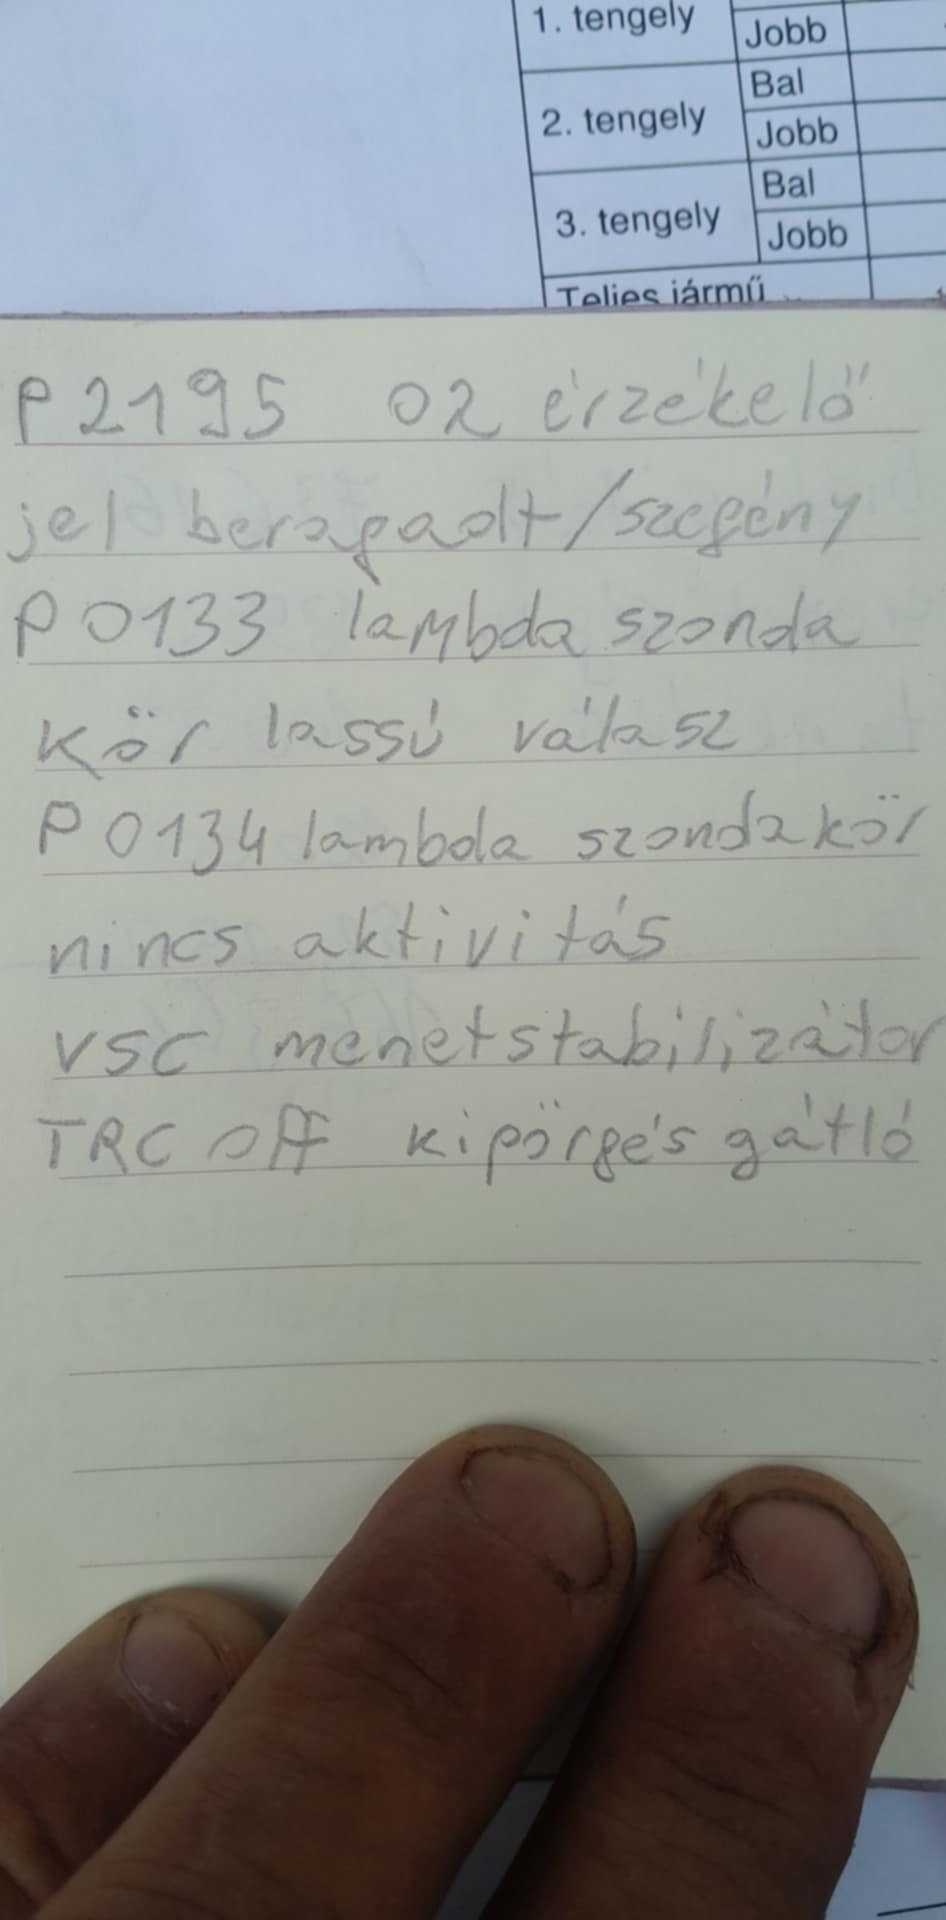 1. tengely
Jobb
2. tengely
Bal
Jobb
3. tengely
Bal
Jobb
Teljes jármű
P2195 O2 érzékelő
jel beragadt/szegény
P0133 lambda szonda
kör lassú válasz
P0134 lambda szonda kör
nincs aktivitás
VSC menetstabilizátor
TRC off kipörgés gátló